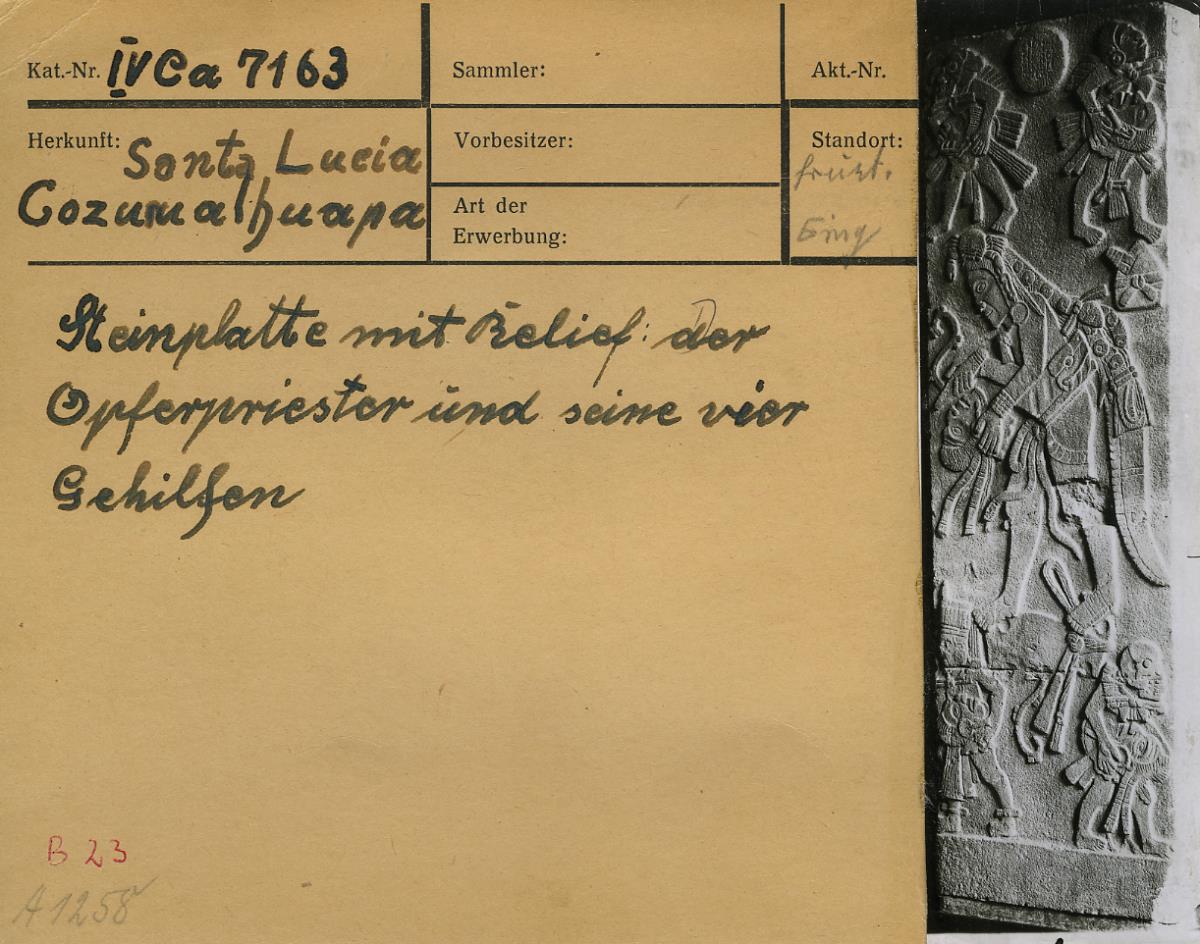 Kat.-Nr. IV Ca 7163
Sammler:
Akt.-Nr.
Herkunft: Santa Lucia
Cozumalhuapa
Vorbesitzer:
Art der
Erwerbung:
Standort:
Steinplatte mit Relief: Der
Opferpriester und seine vier
Gehilfen
B 23
A 1258